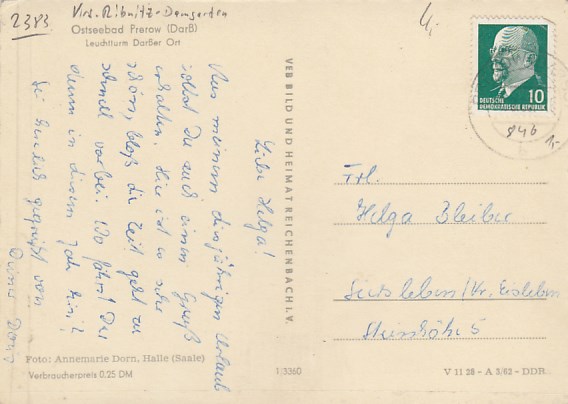 2383 Krs. Ribnitz-Damgarten
Ostseebad Prerow (Darß)
Leuchtturm Darßer Ort
Liebe Helga!
Aus meinem diesjährigen Urlaub
sollst Du auch einen Gruß
erhalten. Hier ist es sehr
schön, bloß die Zeit geht zu
schnell vorbei. Wo fährst Du
denn in diesem Jahr hin?
Sei herzlich gegrüßt von
VEB BILD UND HEIMAT REICHENBACH I. V.
4,-
DEUTSCHE
DEMOKRATISCHE REPUBLIK
10
1,-
Frl.
Helga Bleiber
/Kr. Eisleben
5
Foto: Annemarie Dorn, Halle (Saale)
Verbraucherpreis 0,25 DM
1/3360
V 11 28 - A 3/62 - DDR